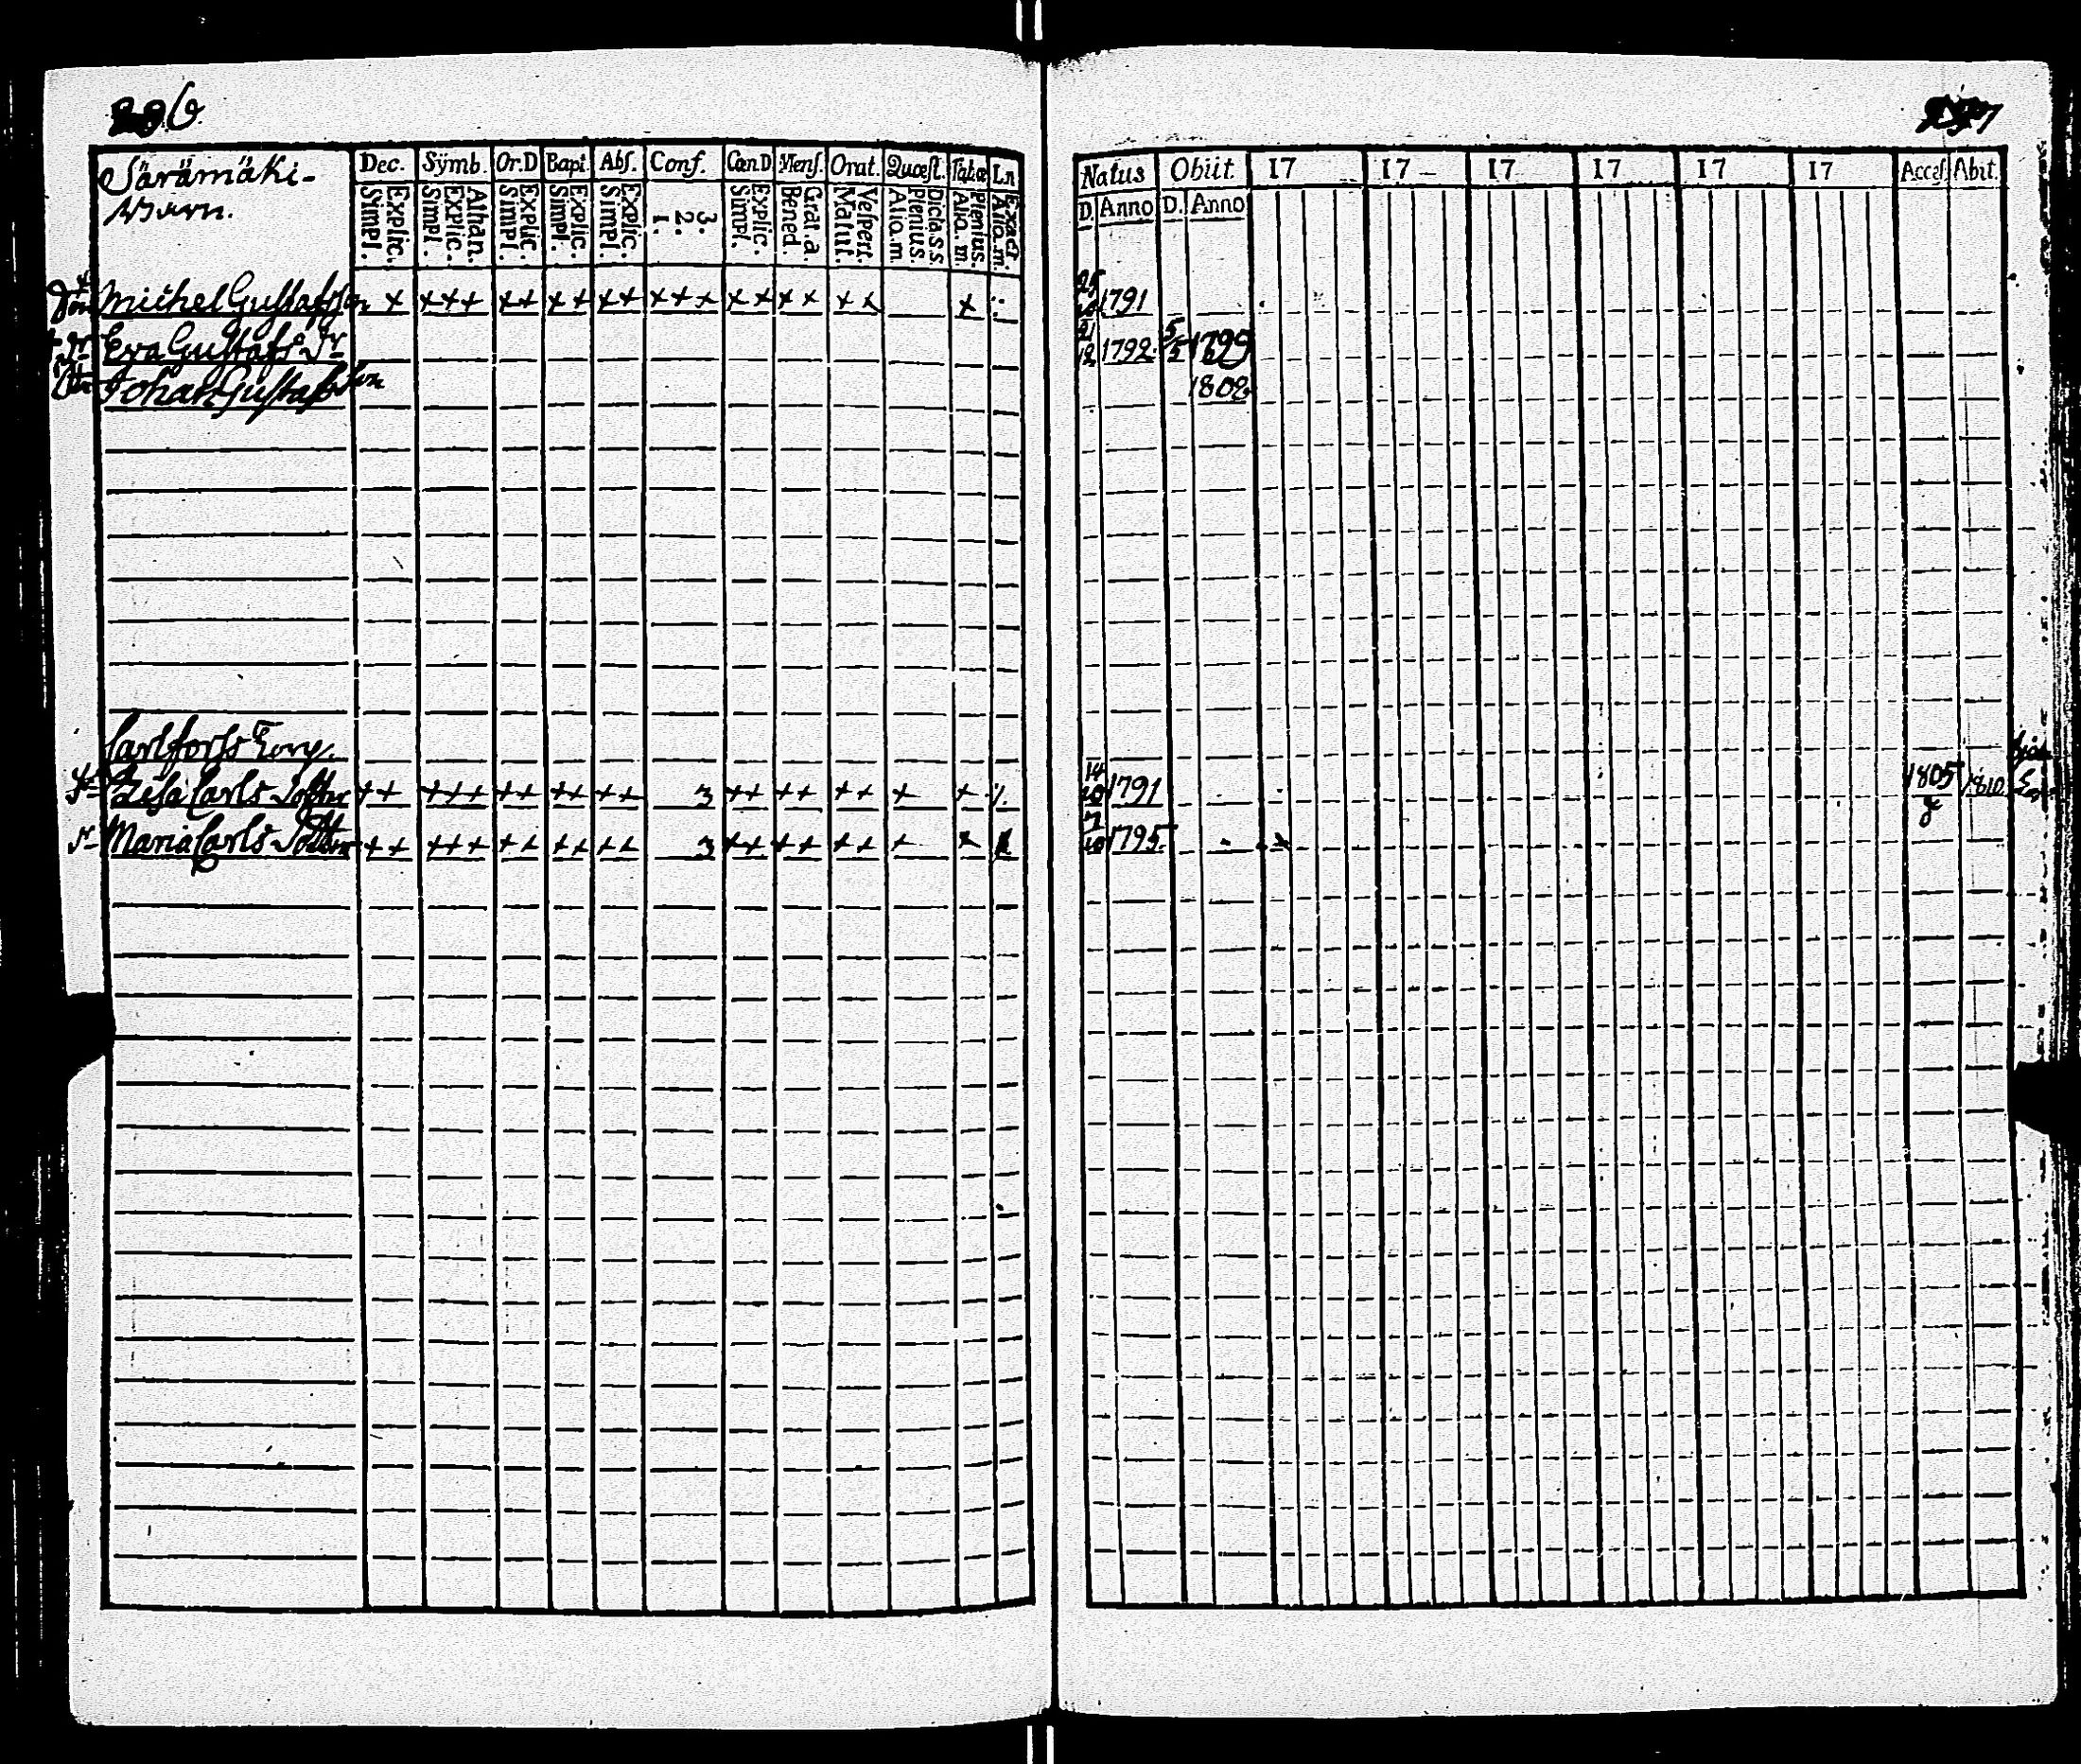 Särämäki-
Dec. Symb. Or.D Bapt. Abſ. Conf. Can.D Menſ. Orat. Quæſt. Tabæ Ln
Explic. Simpl. Athan. Explic. Simpl. Explic. Simpl. Explic. Simpl. Explic. Simpl. 3. 2. 1. Explic. Simpl. Grat. a. Bened. Veſpert. Matut. Dicta s.s. Plenius. Aliq.m. Plenius. Aliq. m. Exact. Aliq.m.
Son Michel Gustafsson x xxx xx xx xx xxx xx xx xx x
Dr Eva Gustafs Dr
Son Johan Gustafsson
Carlsfors Torp.
Dr Lisa Carls Dotter xx xxx xx xx xx 3 xx xx xx x x
Dr Maria Carls Dotter xx xxx xx xx xx 3 xx xx xx x x
Natus Obiit. 17 17 17 17 17 17 Acceſ. Abit.
D. Anno D. Anno
25 10 1791
21 12 1792 5 5 1799
1808
14 10 1791 1805 1810
7 10 1795